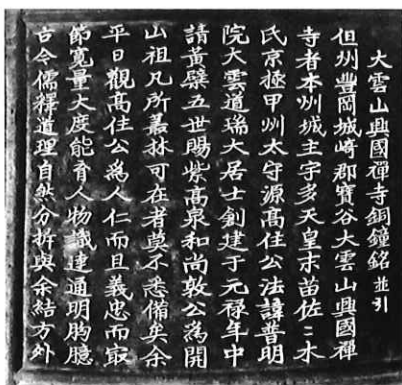 大雲山興國禪寺銅鐘銘並引
但州豐岡城﨑郡寶谷大雲山興國禪
寺者本州城主宇多天皇末苗佐々木
氏京極甲州太守源髙住公法諱普明
院大雲道瑞大居士創建于元禄年中
請黃檗五世賜紫髙泉和尚敦公為開
山祖凡所叢林可在者莫不悉備矣余
平日觀髙住公爲人仁而且義忠而最
節寬量大度能育人物識達通明胸臆
古今儒釋道理自然分折與余結方外